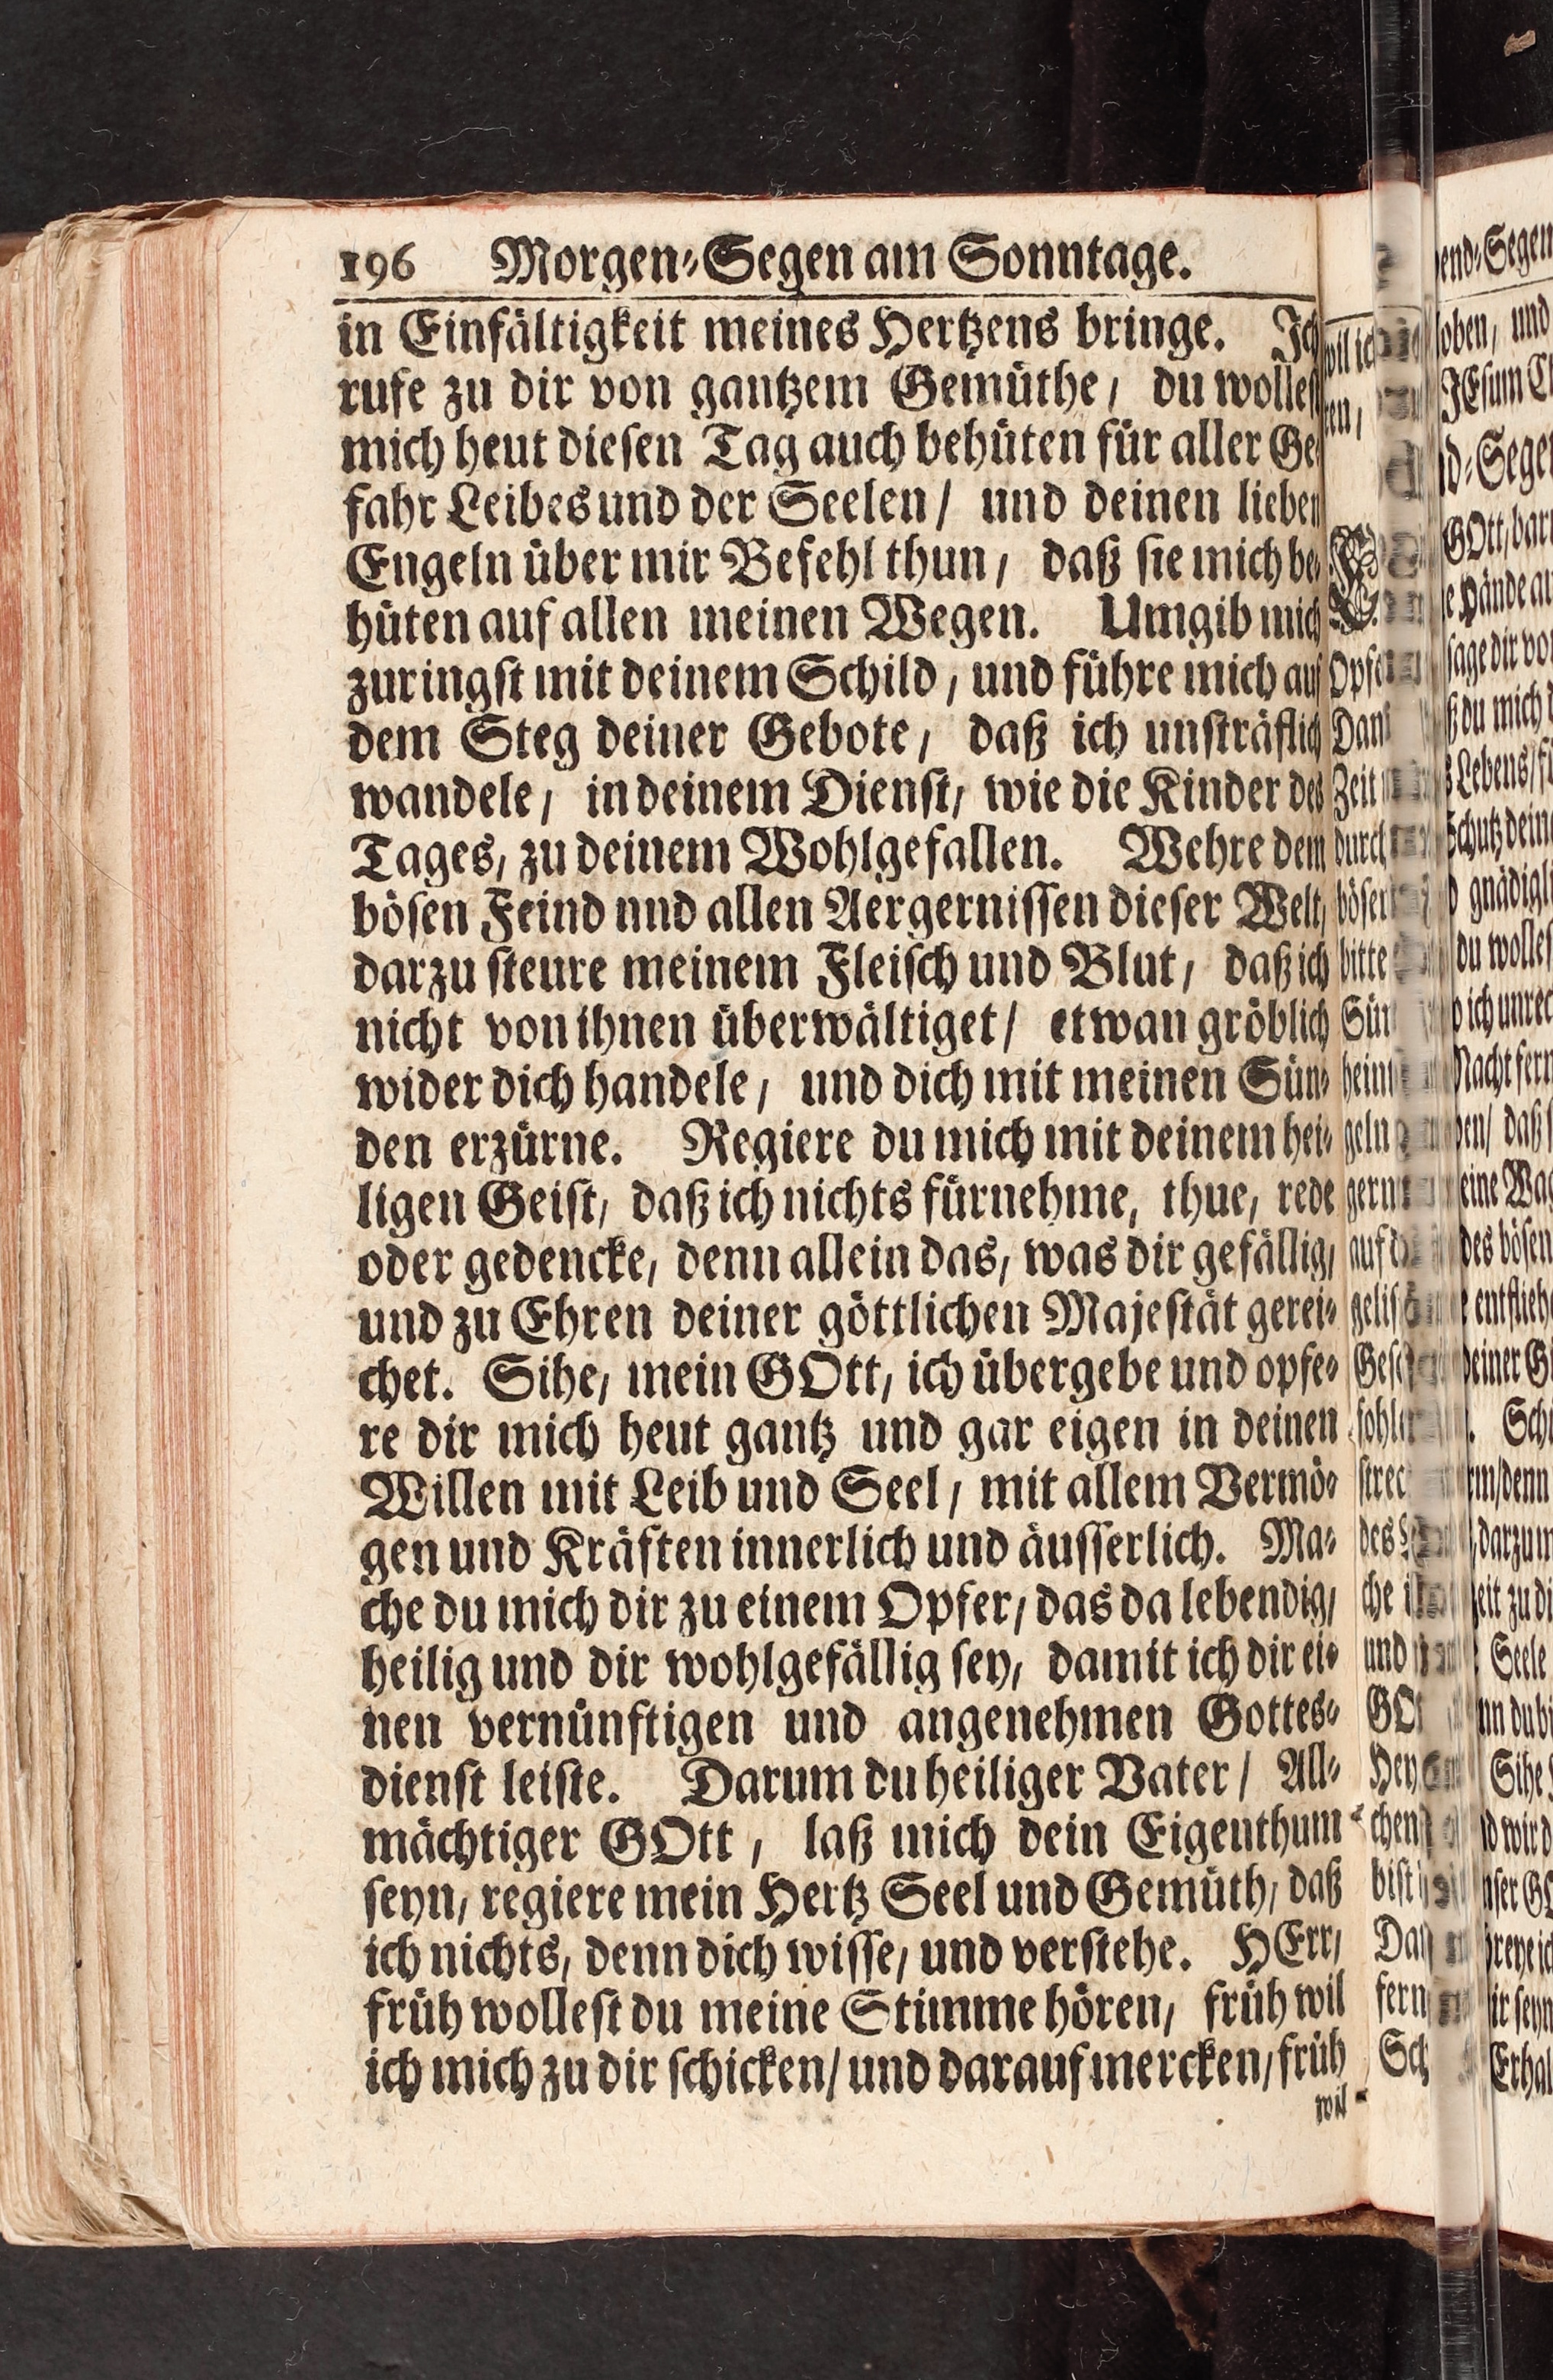 196 Morgen-Segen am Sonntage.
in Einfältigkeit meines Hertzens bringe. Ich
rufe zu dir von gantzem Gemüthe / du wollest
mich heut diesen Tag auch behüten für aller Ge-
fahr Leibes und der Seelen / und deinen lieben
Engeln über mir Befehl thun / daß sie mich be-
hüten auf allen meinen Wegen. Umgib mich
zuringst mit deinem Schild / und führe mich auf
dem Steg deiner Gebote / daß ich unsträflich
wandele / in deinem Dienst / wie die Kinder des
Tages, zu deinem Wohlgefallen. Wehre dem
bösen Feind nnd allen Aergernissen dieser Welt,
darzu steure meinem Fleisch und Blut / daß ich
nicht von ihnen überwältiget / etwan gröblich
wider dich handele / und dich mit meinen Sün-
den erzürne. Regiere du mich mit deinem hei-
ligen Geist / daß ich nichts fürnehme, thue, rede
oder gedencke, denn allein das, was dir gefällig,
und zu Ehren deiner göttlichen Majestät gerei-
chet. Sihe, mein GOtt, ich übergebe und opfe-
re dir mich heut gantz und gar eigen in deinen
Willen mit Leib und Seel / mit allem Vermö-
gen und Kräften innerlich und äusserlich. Ma-
che du mich dir zu einem Opfer / das da lebendig,
heilig und dir wohlgefällig sey, damit ich dir ei-
nen vernünftigen und angenehmen Gottes-
dienst leiste. Darum du heiliger Vater / All-
mächtiger GOtt / laß mich dein Eigenthum
seyn, regiere mein Hertz Seel und Gemüth, daß
ich nichts, denn dich wisse, und verstehe. HErr,
früh wollest du meine Stimme hören, früh wil
ich mich zu dir schicken / und darauf mercken / früh
wil